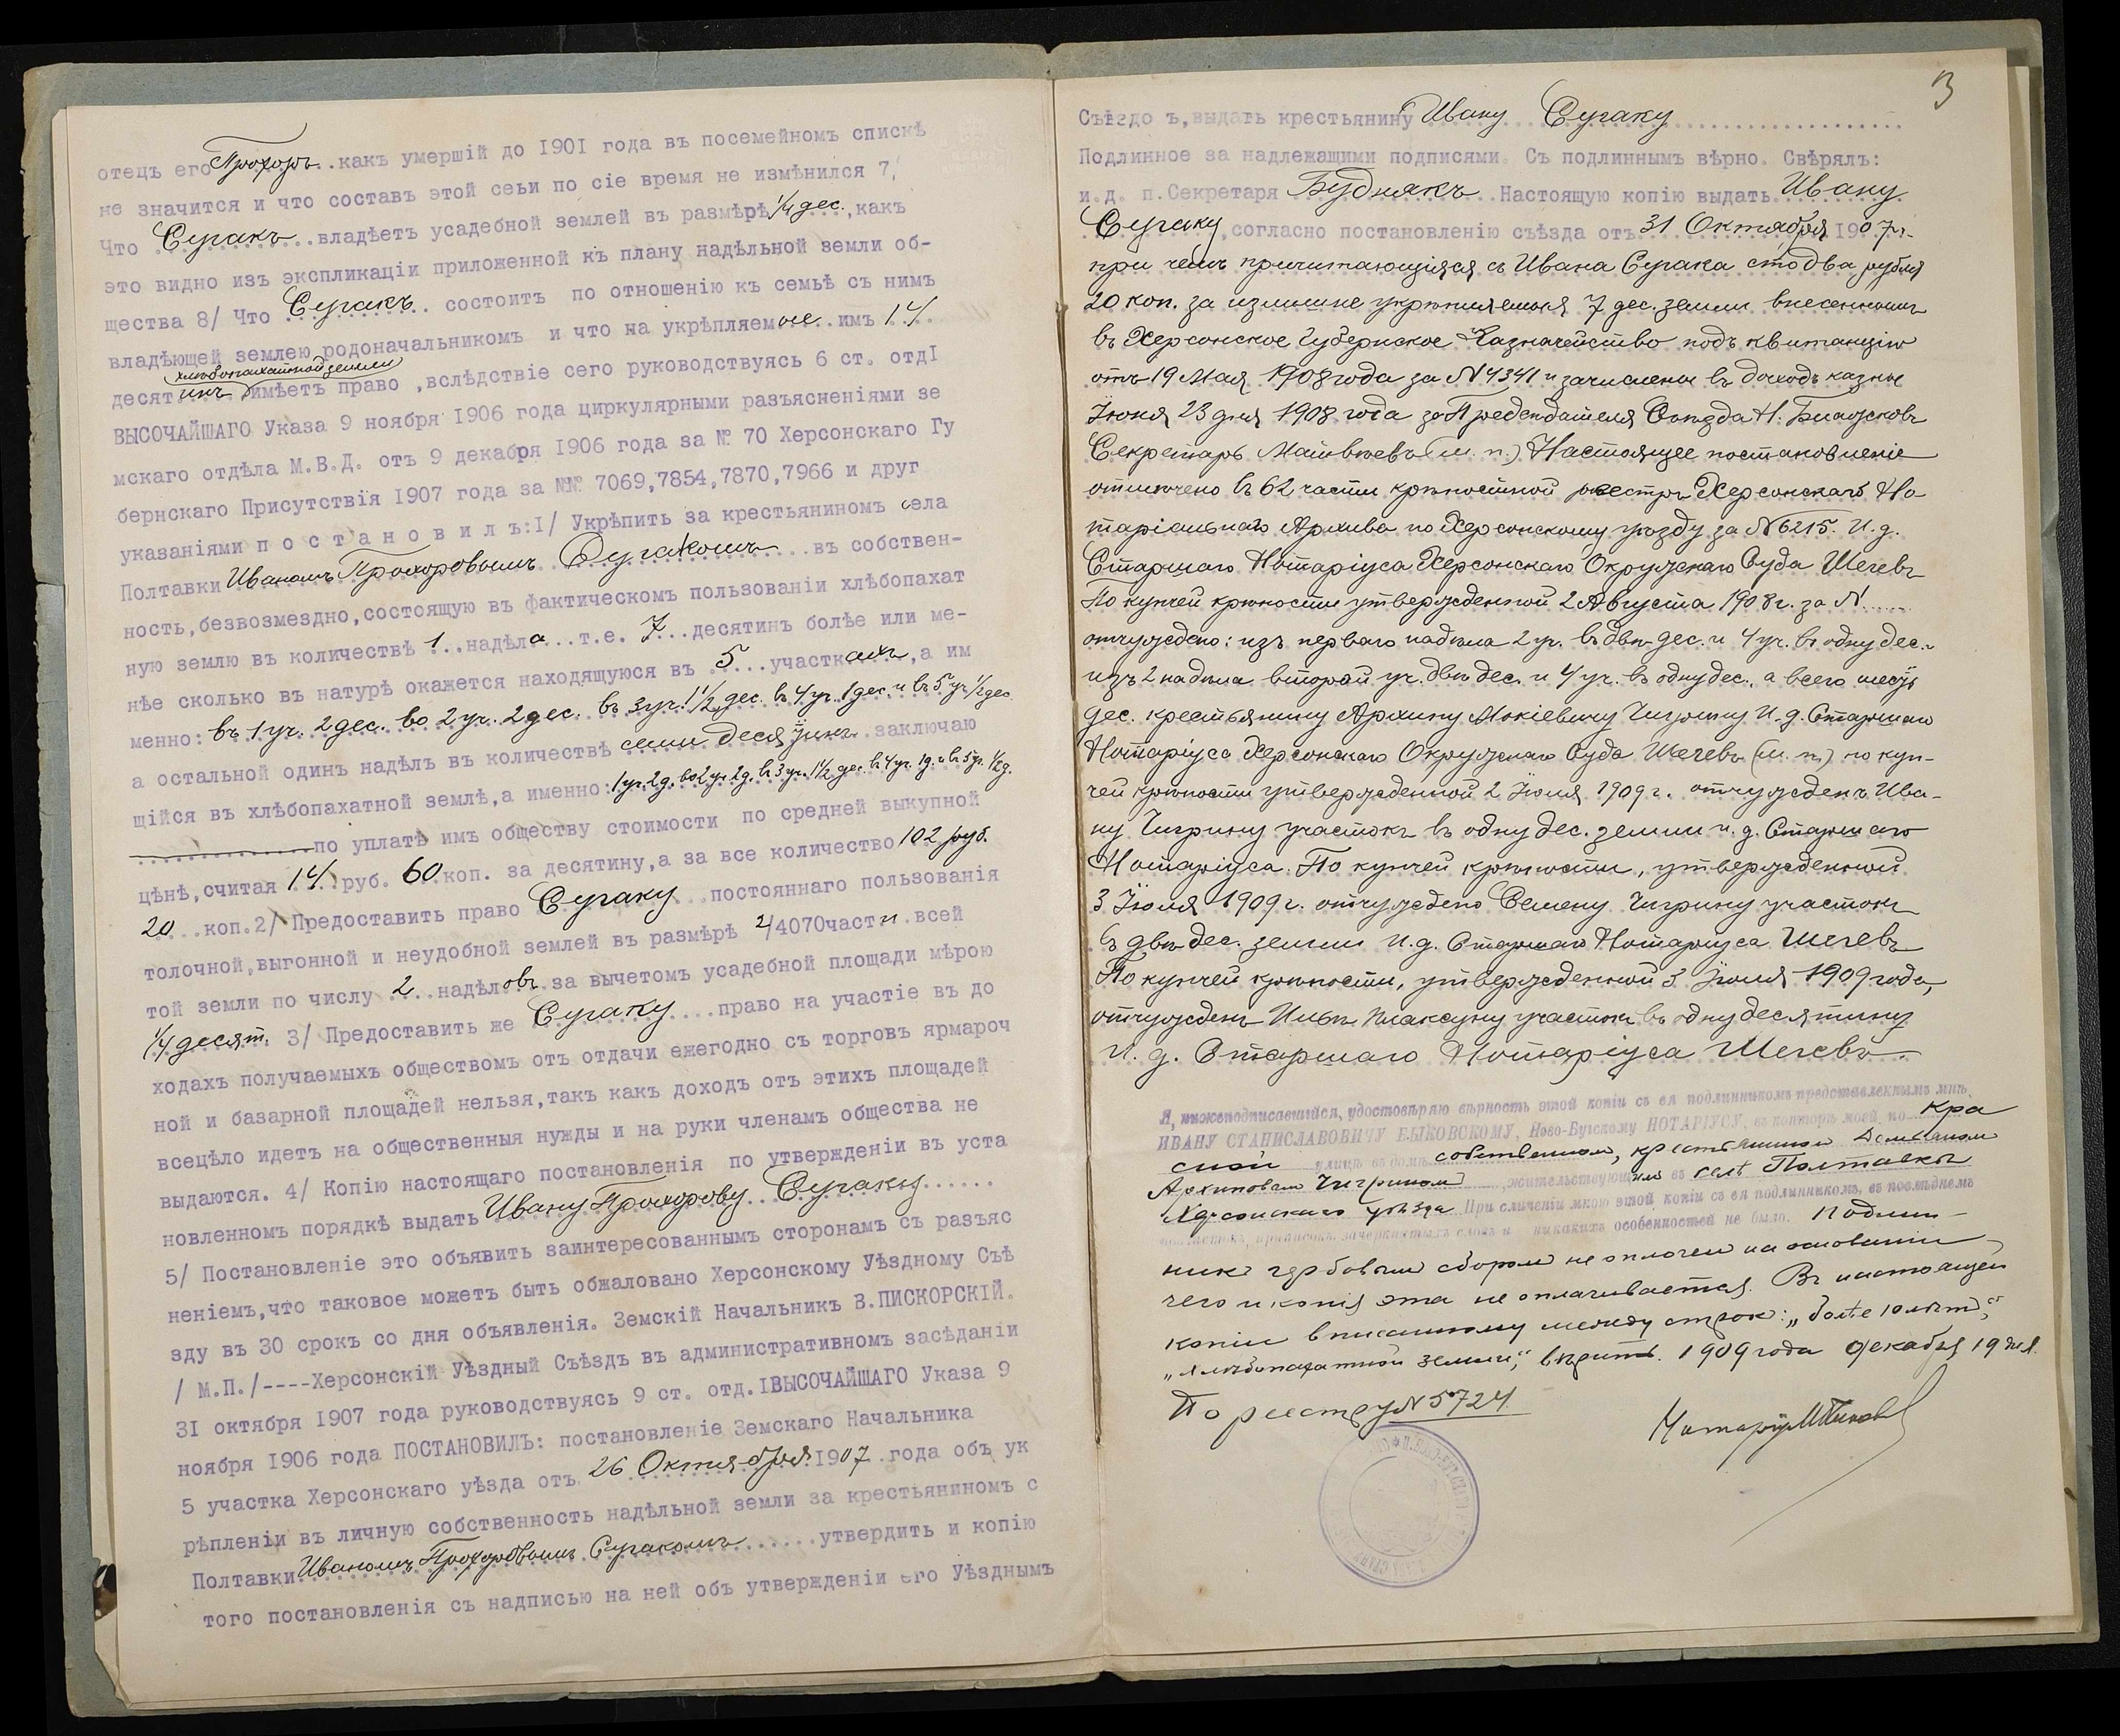 отецъ его Прохоръ..какъ умершій до 1901 года въ посемейномъ спискѣ
не значится и что составъ этой сеьи по сіе время не измѣнился 7/
Что Сугакъ...владѣетъ усадебной землей въ размѣрѣ 1/4 дес...,какъ
это видно изъ экспликаціи приложенной къ плану надѣльной земли об-
щества 8/ Что Сугакъ.. состоитъ по отношенію къ семьѣ съ нимъ
владѣющей землею родоначальникомъ и что на укрѣпляемые..имъ 14.
хлѣбопахатной земли
десятинъ имѣетъ право ,вслѣдствіе сего руководствуясь 6 ст. отдI
ВЫСОЧАЙШАГО Указа 9 ноября 1906 года циркулярными разъясненіями зе
мскаго отдѣла М.В.Д. отъ 9 декабря 1906 года за № 70 Херсонскаго Гу
бернскаго Присутствія 1907 года за №№ 7069,7854,7870,7966 и друг
указаніями п о с т а н о в и л ъ:I/ Укрѣпить за крестьяниномъ села
Полтавки Иваномъ Прохоровымъ Сугакомъ....въ собствен-
ность,безвозмездно,состоящую въ фактическомъ пользованіи хлѣбопахат
ную землю въ количествѣ 1..надѣла...т.е. 7...десятинъ болѣе или ме-
нѣе сколько въ натурѣ окажется находящуюся въ 5...участкахъ,а им
менно: въ 1 уч. 2 дес. во 2 уч. 2 дес. въ 3 уч. 1 1/2 дес. въ 4 уч. 1 дес. и въ 5 уч. 1/2 дес
а остальной одинъ надѣлъ въ количествѣ семи десятинъ заключаю
щійся въ хлѣбопахатной землѣ,а именно: 1 уч. 2 д. во 2 уч. 2 д. въ 3 уч. 1 1/2 дес. въ 4 уч. 1 д. и въ 5 уч. 1/2 д.
..............по уплатѣ имъ обществу стоимости по средней выкупной
цѣнѣ,считая 14..руб. 60 коп. за десятину,а за все количество 102 руб.
20....коп.2/ Предоставить право Сугаку...постояннаго пользованія
толочной,выгонной и неудобной землей въ размѣрѣ 2/4070 части.всей
той земли по числу 2...надѣловъ.за вычетомъ усадебной площади мѣрою
1/4 десят. 3/ Предоставить же Сугаку....право на участіе въ до
ходахъ получаемыхъ обществомъ отъ отдачи ежегодно съ торговъ ярмароч
ной и базарной площадей нельзя,такъ какъ доходъ отъ этихъ площадей
всецѣло идетъ на общественныя нужды и на руки членамъ общества не
выдаются. 4/ Копію настоящаго постановленія по утвержденіи въ уста
новленномъ порядкѣ выдать Ивану Прохорову Сугаку......
5/ Постановленіе это объявить заинтересованнымъ сторонамъ съ разъяс
неніемъ,что таковое можетъ быть обжаловано Херсонскому Уѣздному Съѣ
зду въ 30 срокъ со дня объявленія. Земскій Начальникъ В.ПИСКОРСКІЙ.
/ М.П./----Херсонскій Уѣздный Съѣздъ въ административномъ засѣданіи
31 октября 1907 года руководствуясь 9 ст. отд.IВЫСОЧАЙШАГО Указа 9
ноября 1906 года ПОСТАНОВИЛЪ: постановленіе Земскаго Начальника
5 участка Херсонскаго уѣзда отъ 26 Октября 1907 года объ ук
рѣпленіи въ личную собственность надѣльной земли за крестьяниномъ с
Полтавки Иваномъ Прохоровымъ Сугакомъ.......утвердить и копію
того постановленія съ надписью на ней объ утвержденіи его Уѣзднымъ
3
Съѣздо ъ,выдать крестьянину Ивану Сугаку
Подлинное за надлежащими подписями. Съ подлиннымъ вѣрно. Свѣрялъ:
и.д. п.Секретаря Буднякъ..Настоящую копію выдать Ивану
Сугаку,согласно постановленію съѣзда отъ 31 Октября 1907 г.
при чемъ причитающіяся съ Ивана Сугака сто два рубля
20 коп. за излишне укрѣпляемыя 7 дес. земли внесенными
въ Херсонское Губернское Казначейство подъ квитанцію
отъ 19 Мая 1908 года за № 4341 и зачислены въ доходъ казны
Іюня 23 дня 1908 года за Предсѣдателя Съѣзда Н.
Секретарь Матвѣевъ (м. п.) Настоящее постановленіе
отмѣчено въ 62 части крѣпостной реестръ Херсонскаго Но
таріальнаго Архива по Херсонскому уѣзду за № 6215. И.д.
Старшаго Нотаріуса Херсонскаго Окружнаго Суда Шегевъ
По купчей крѣпости утвержденной 2 Августа 1908 г. за №.....
отчуждено: изъ перваго надѣла 2 уч. въ двѣ дес. и 4 уч. въ одну дес. и
изъ 2 надѣла второй уч. двѣ дес. и 4 уч. въ одну дес., а всего шесть
дес. крестьянину Архипу Мокіевичу Чигрину И.д. Старшаго
Нотаріуса Херсонскаго Окружнаго Суда Шегевъ (м. п.) по куп-
чей крѣпости утвержденной 2 Іюля 1909 г. отчужденъ Ива-
ну Чигрину участокъ въ одну дес. земли и.д. Старшаго
Нотаріуса. По купчей крѣпости, утвержденной
3 Іюля 1909 г. отчуждено Семену Чигрину участокъ
въ двѣ дес. земли И.д. Старшаго Нотаріуса Шегевъ
По купчей крѣпости, утвержденной 3 Іюля 1909 года,
отчужденъ Ильѣ Плаксуну участокъ въ одну десятину
И. д. Старшаго Нотаріуса Шегевъ.
Я, нижеподписавшійся, удостовѣряю вѣрность этой копіи съ ея подлинникомъ представленнымъ мнѣ
ИВАНУ СТАНИСЛАВОВИЧУ БЫКОВСКОМУ, Ново-Бугскому НОТАРІУСУ, въ конторѣ моей, по Кра
сной улицѣ въ домѣ собственном, крестьянином Демьяном
Архиповым Чигрином, жительствующим въ селѣ Полтавкѣ
Херсонскаго уѣзда При сличеніи мною этой копіи съ ея подлинникомъ, въ послѣднемъ
приписокъ, зачеркнутыхъ словъ и никакихъ особенностей не было. Подлин-
никъ гербовым сбором не оплочен на основаніи
чего и копія эта не оплачивается. Въ настоящей
копіи вписанному между строк: „болѣе 10 лѣт“,
„хлѣбопахатной земли“, вѣрить. 1909 года Декабря 19 дня.
По реестру № 5724
Нотаріусъ